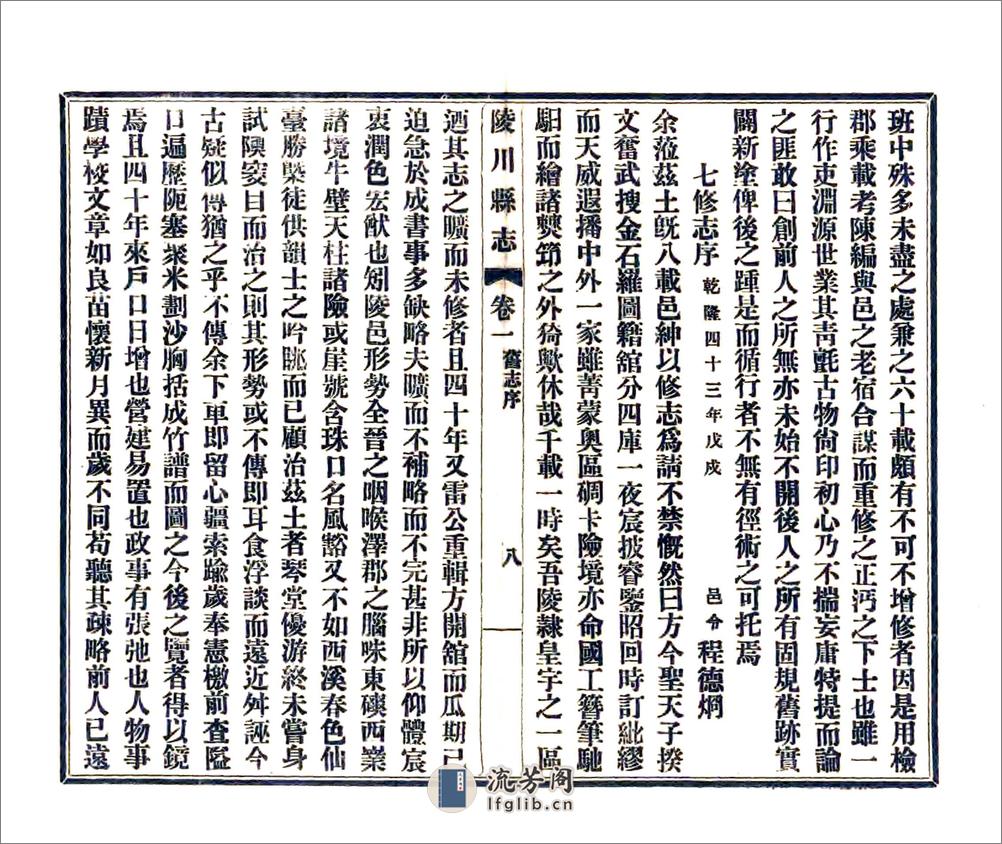 班中殊多未盡之處兼之六十載頗有不可不增修者因是用檢
郡乘載考陳編與邑之老宿合謀而重修之正沔之下士也雖一
行作吏淵源世業其靑氈古物尙印初心乃不揣妄庸特提而論
之匪敢曰創前人之所無亦未始不開後人之所有固規舊跡實
闢新塗俾後之踵是而循行者不無有徑術之可托焉
七修志序 乾隆四十三年戊戌 邑令 程德烱
余蒞茲土旣八載邑紳以修志爲請不禁慨然曰方今聖天子揆
文奮武搜金石羅圖籍舘分四庫一夜宸披睿鑒昭回時訂紕繆
而天威遐播中外一家雖菁蒙奧區碉卡險境亦命國工簪筆馳
馹而繪諸僰筇之外猗歟休哉千載一時矣吾陵隷皇宇之一區
陵川縣志 卷一 舊志序 八
迺其志之曠而未修者且四十年又雷公重輯方開舘而瓜期已
迫急於成書事多缺略夫曠而不補略而不完甚非所以仰體宸
衷潤色宏猷也矧陵邑形勢全晉之咽喉澤郡之腦味東磢西欒
諸境牛壁天柱諸險或崖號含珠口名風豁又不如西溪春色仙
臺勝槩徒供韻士之吟眺而已顧治茲土者琴堂優游終未嘗身
試隩窔目而治之則其形勢或不傳卽耳食浮談而遠近舛誣今
古疑似傳猶之乎不傳余下車卽留心疆索踰歲奉憲檄前查隘
口遍歷阨塞聚米劃沙胸括成竹譜而圖之今後之覽者得以鏡
焉且四十年來戶口日增也營建易置也政事有張弛也人物事
蹟學校文章如良苗懷新月異而歲不同苟聽其疎略前人已遠
流芳阁
lfglib.cn